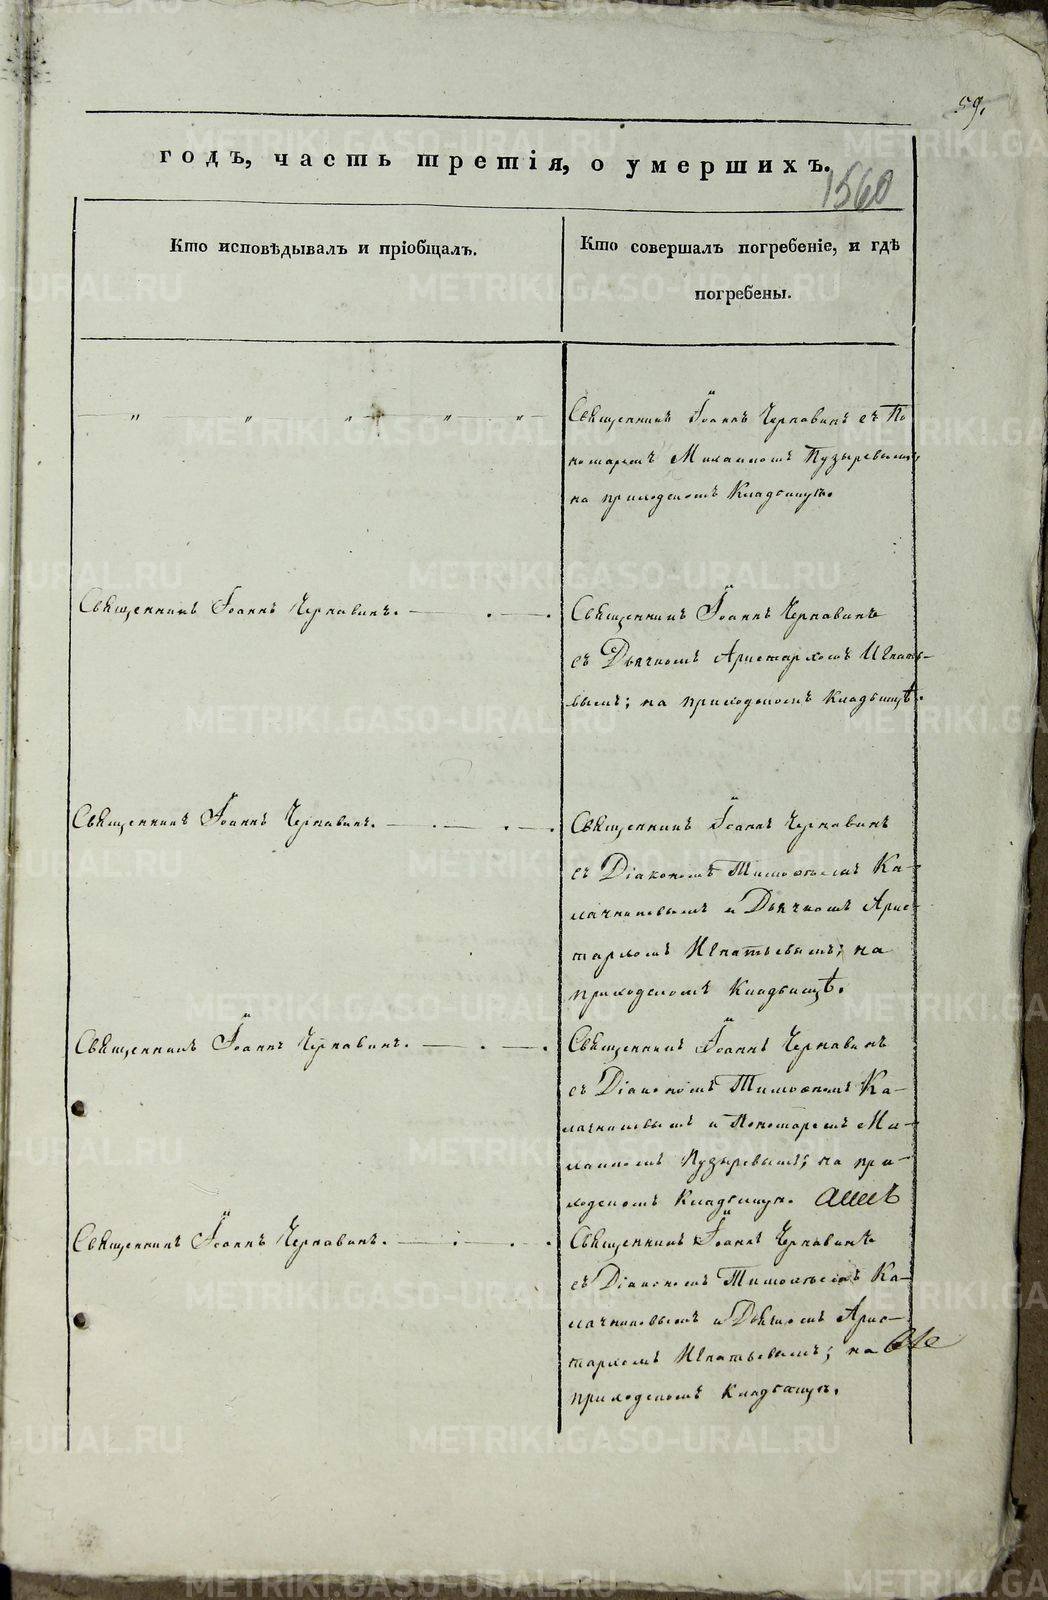 59.
годъ, часть третія, о умершихъ.
1560
Кто исповѣдывалъ и пріобщалъ.
Кто совершалъ погребеніе, и гдѣ
погребены.
" " " " "
Священникъ Іоаннъ Чернавинъ съ По
номаремъ Михаиломъ Пузыревымъ,
на приходскомъ Кладбищѣ.
Священникъ Іоаннъ Чернавинъ.
Священникъ Іоаннъ Чернавинъ
съ Дьячкомъ Аристархомъ Игнать-
вымъ; на приходскомъ Кладбищѣ.
Священникъ Іоаннъ Чернавинъ.
Священникъ Іоаннъ Чернавинъ
съ Діакономъ Тимоѳеемъ Ка-
лачниковымъ и Дьячкомъ Арис-
тархомъ Игнатьевымъ; на
приходскомъ Кладбищѣ.
Священникъ Іоаннъ Чернавинъ.
Священникъ Іоаннъ Чернавинъ
съ Діакономъ Тимоѳеемъ Ка-
лачниковымъ и Пономаремъ Ми-
хаиломъ Пузыревымъ; на при-
ходскомъ Кладбищѣ.
Священникъ Іоаннъ Чернавинъ.
Священникъ Іоаннъ Чернавинъ
съ Діакономъ Тимоѳеемъ Ка-
лачниковымъ и Дьячкомъ Арис-
тархомъ Игнатьевымъ; на
приходскомъ Кладбищѣ.
METRIKI.GASO-URAL.RU